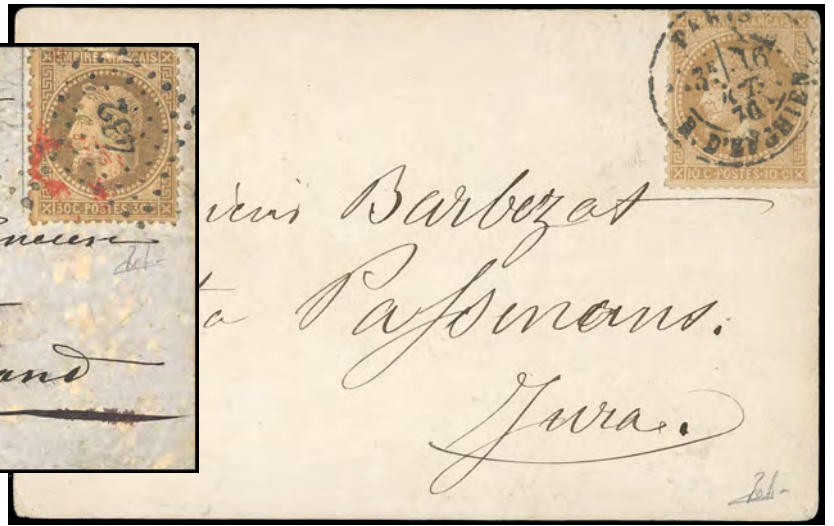 EMPIRE FRANÇAIS
1632
30 C·POSTES·30 C
and
EMPIRE FRANÇAIS
PARIS
3E 16
OCT.
70
R. D'ENGHIEN
10 C·POSTES·10 C
Barbezat
à Passenans.
Jura.